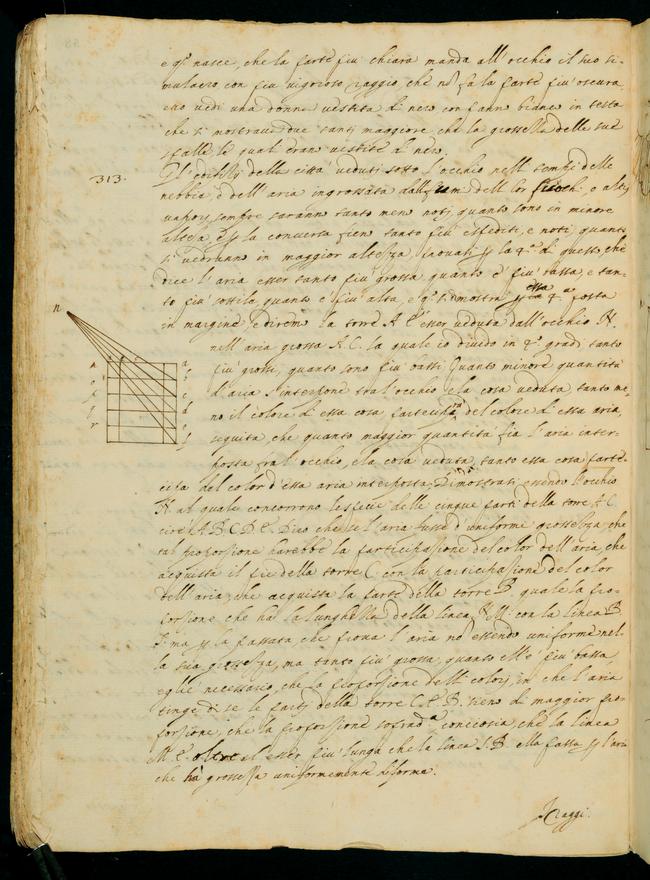 e q.o nasce, che la parte più chiara manda all'occhio il suo si-
mulacro con più vigoroso raggio, che nō fa la parte più oscura,
e io vedi una donna vestita di nero con panno bianco in testa
che si mostrava due tanti maggiore, che la grossezza delle sue
spalle, le quali erano vestite di nero.
313.
Gl'edifitij della città veduti sotto l'occhio nelli tempi delle
nebbie, ò dell'aria ingrossata dalli fumi delli lor fuochi, e altri
vapori, sempre saranno tanto meno noti, quanto sono in minore
altezza, e la conversa fieno tanto più espediti, e noti, quanto
si vedranno in maggior altezza provasi la 4.a di questo, che
dice l'aria esser tanto più grossa quanto è più bassa, e tan-
to più sottile quanto è più alta, e q.o si dimostra essa 4.a posta
n
in margine e diremo la torre A E esser veduta dall'occhio N.
nell'aria grossa A. C. la quale io divido in 4.o gradi tanto
più grossi, quanto sono più bassi. Quanto minore quantità
d'aria s'interpone tra l'occhio e la cosa veduta, tanto me-
no il colore di essa cosa participa del colore di essa aria,
seguita, che quanto maggior quantità fia l'aria inter-
posta fra l'occhio, e la cosa veduta, tanto essa cosa parte-
cipa del color d'essa aria interposta; Dimostrasi essendo l'occhio
N. al quale concorrono le spetie delle cinque parti della torre A. C.
cioè A. B. C. D. E. Dico che se l'aria fusse d'uniforme grossezza, che
tal proporsione harebbe la participasione del color dell'aria, che
acquista il piè della torre C con la participasione del color
dell'aria, che acquista la parte della torre B quale la pro-
porsione che ha la lunghezza della linea con la linea B
ma la passata che prova l'aria nō essendo uniforme nel-
la sua grossezza, ma tanto più grossa, quanto ell'è più bassa,
egli è necessario, che la proporsione delli colori, in che l'aria
tinge di se le parti della torre C. e B. sieno di maggior pro-
porsione, che la proporsione sopradetta, conciosia, che la linea
M. C. oltre al esser più lunga che la linea S. B. ella passa l'aria
che ha grossezza uniformemente difforme.
Raggi.